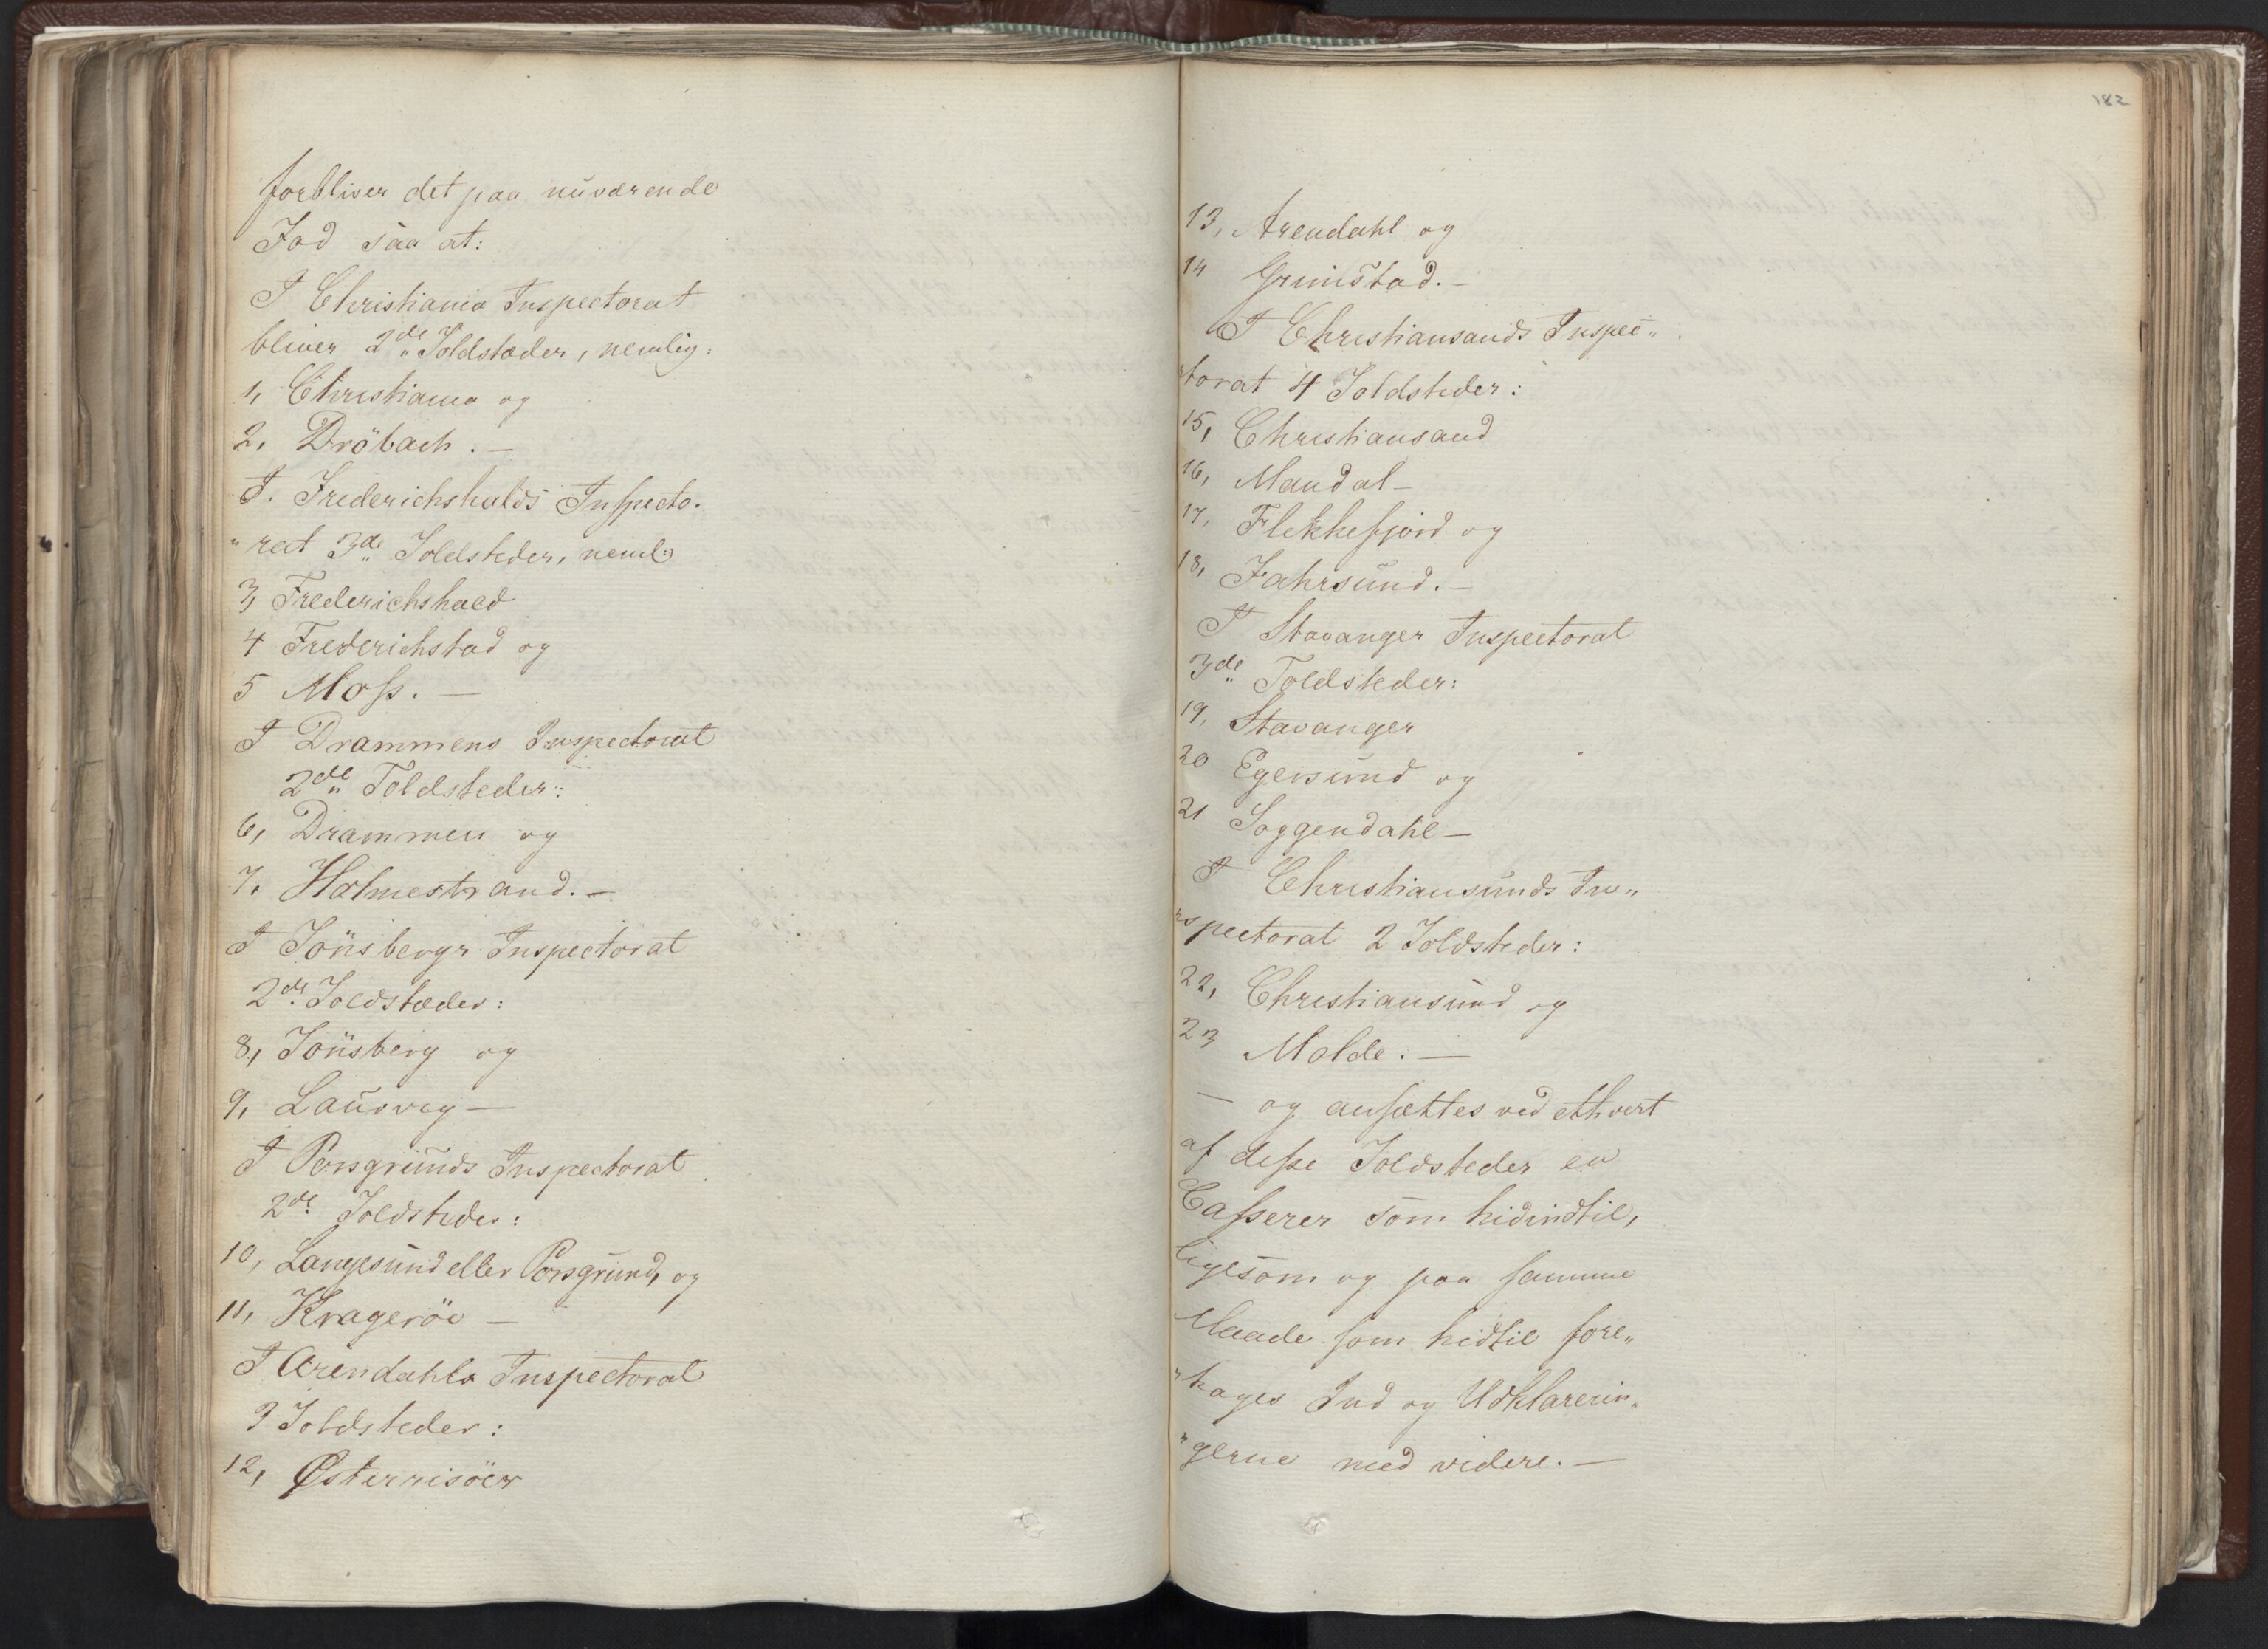 forbliver det paa nuværende
Fod saa at:
I Christiania Inspectorat
bliver 2de Toldstæder, nemlig:
1, Christiania og
2, Dröbach. —
I. Frederichshalds Inspecto-
"rat 3de Toldsteder, neml:
3, Frederichshald
4 Frederichstad og
5 Moss. —
I Drammens Inspectorat
2de Toldsteder:
6, Drammen og
7. Holmestrand. —
I Tönsbergs Inspectorat
2de Toldstæder:
8, Tönsberg og
9, Laurvig —
I Porsgrunds Inspectorat
2de Toldsteder:
10, Langesund eller Porsgrund, og
11, Krageröe —
I Arendahls Inspectorat
3 Toldsteder:
12, Østerrisöer
182
13, Arendahl og
14 Grimstad. —
I Christiansands Inspec"
"torat 4 Toldsteder:
15, Christiansand
16, Mandal —
17, Flekkefjord og
18, Fahrsund. —
I Stavanger Inspectorat
3de Toldsteder:
19, Stavanger
20 Egersund og
21 Soggendahl —
I Christiansunds In"
"spectorat 2 Toldsteder:
22, Christiansund og
23 Molde. —
— og ansættes ved ethvert
af disse Toldsteder en
Casserer som hidindtil,
ligesom og paa samme
Maade som hidtil fore"
"tages Ind og Udklarerin"
"gerne med videre. —